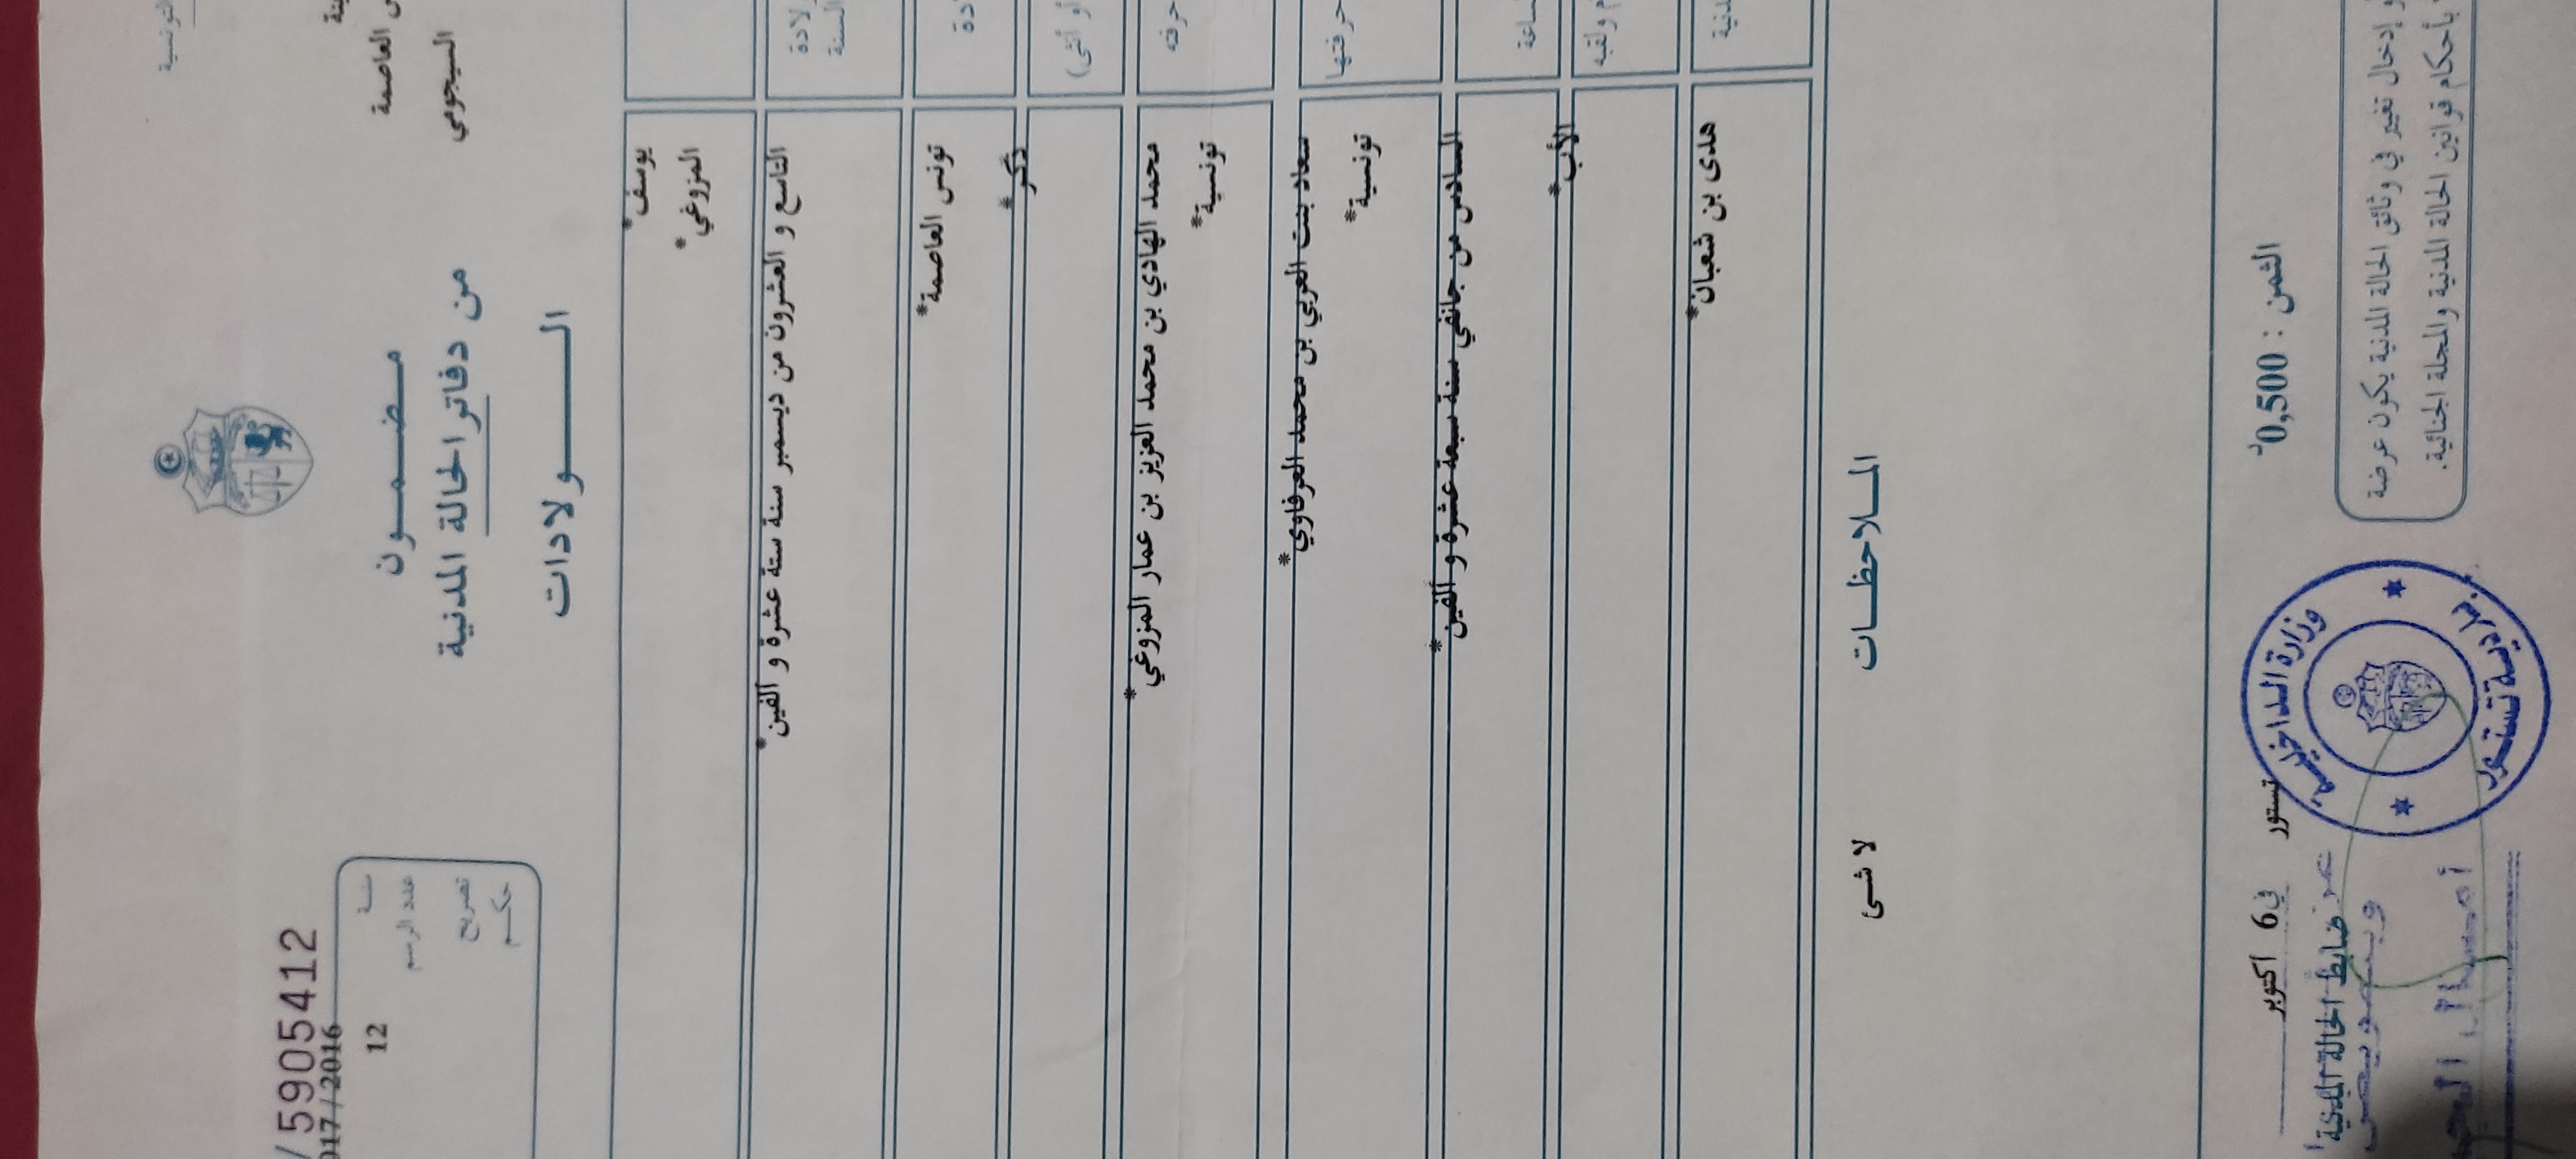 التونسية
العاصمة
السيجومي
مضمون
من دفاتر الحالة المدنية
الولادات
/5905412
2017/2016
سنة
12
عدد الرسم
تصريح
حكم
يوسف*
المزوغي*
السنة
التاسع و العشرون من ديسمبر سنة ستة عشرة و ألفين*
تونس العاصمة*
أو أنثى)
ذكر*
حرفته
محمد الهادي بن محمد العزيز بن عمار المزوغي*
تونسية*
حرفتها
سعاد بنت العربي بن محمد العرفاوي*
تونسية*
السادس من جانفي سنة سبعة عشرة و ألفين*
ولقبه
الأب*
هدى بن شعبان*
الملاحظات
لا شئ
الثمن : 0,500د
تستور في 6 اكتوبر
ضابط الحالة المدنية
إدخال تغيير في وثائق الحالة المدنية يكون عرضة
بأحكام قوانين الحالة المدنية والمجلة الجنائية.
وزارة الداخلية
بلدية تستور